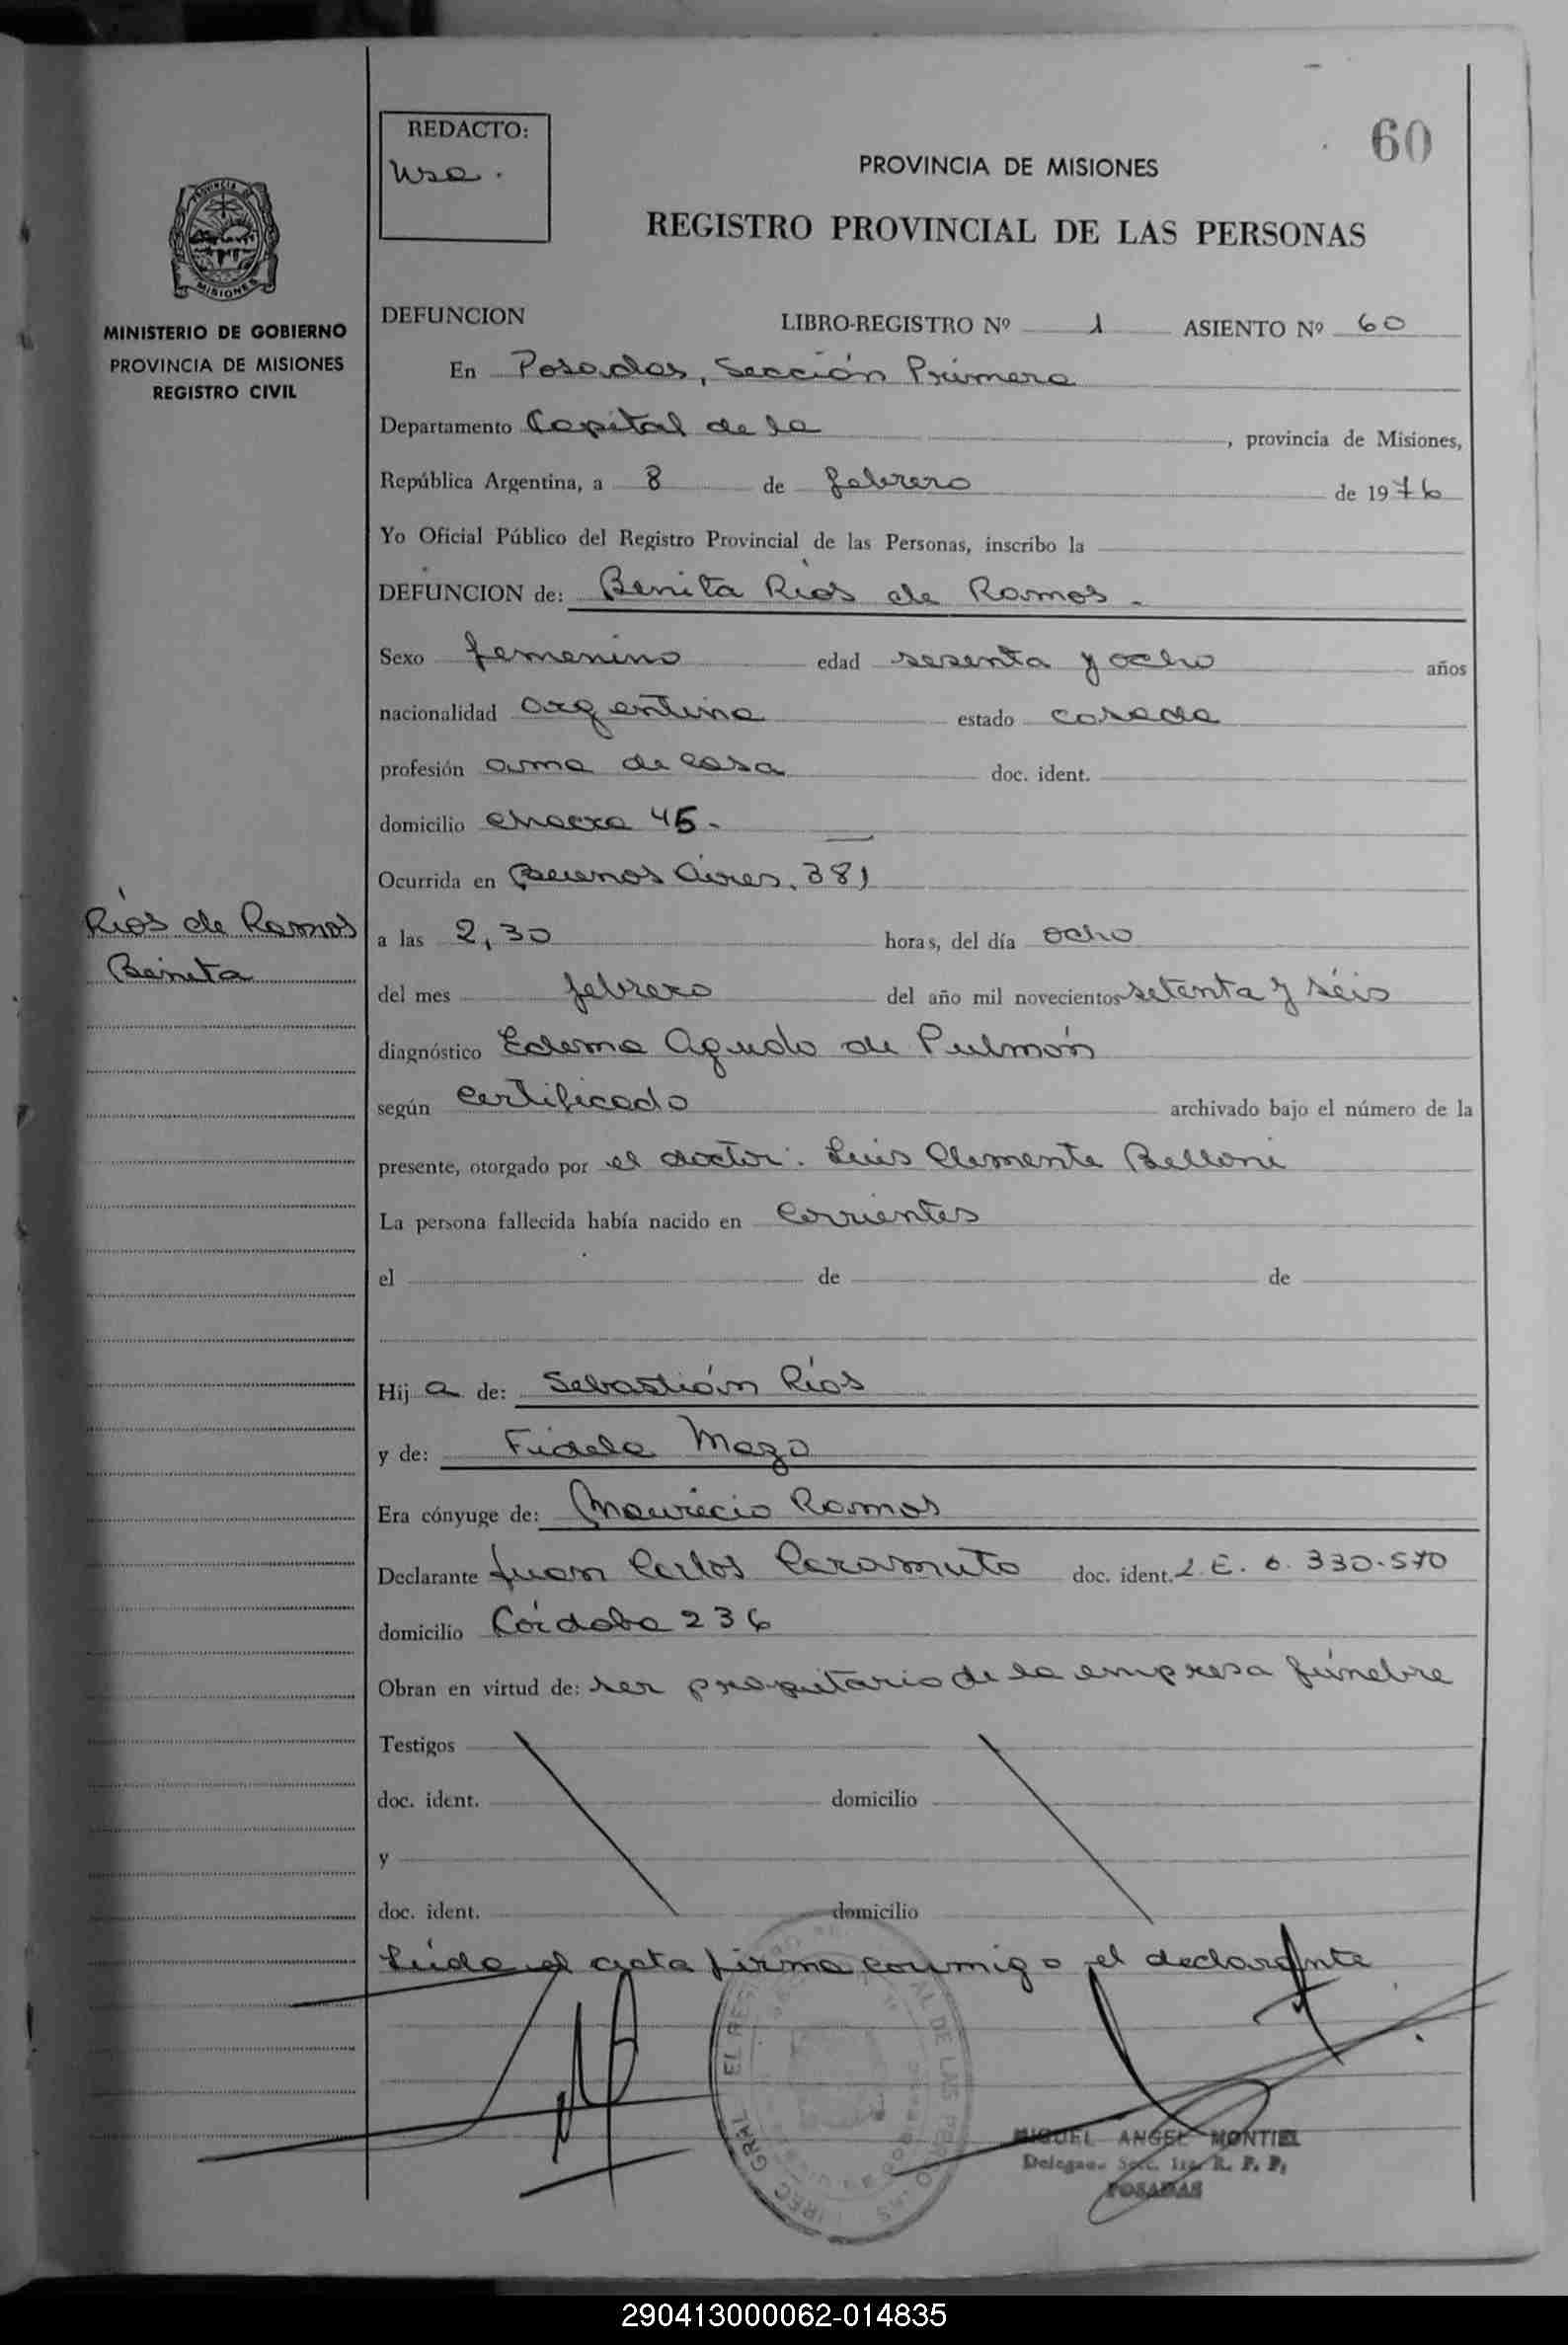 60
REDACTO:
PROVINCIA DE MISIONES
REGISTRO PROVINCIAL DE LAS PERSONAS
MISIONES
MINISTERIO DE GOBIERNO
PROVINCIA DE MISIONES
REGISTRO CIVIL
DEFUNCION LIBRO-REGISTRO Nº 1 ASIENTO Nº 60
En Posadas, Sección Primera
Departamento Capital de la , provincia de Misiones,
República Argentina, a 8 de febrero de 1976
Yo Oficial Público del Registro Provincial de las Personas, inscribo la
DEFUNCION de: Benita Ríos de Ramos.
Sexo femenino edad sesenta y ocho años
nacionalidad argentina estado casada
profesión ama de casa doc. ident.
domicilio chacra 45.
Ocurrida en Buenos Aires. 381
Ríos de Ramos
Benita
a las 2,30 horas, del día ocho
del mes febrero del año mil novecientos setenta y séis
diagnóstico Edema Agudo de Pulmón
según certificado archivado bajo el número de la
presente, otorgado por el doctor: Luis Clemente Belloni
La persona fallecida había nacido en Corrientes
el de de
Hij a de: Sebastián Ríos
y de: Fidela Mazo
Era cónyuge de: Mauricio Ramos
Declarante Juan Carlos Caramuto doc. ident. L.E. 6.330.570
domicilio Córdoba 236
Obran en virtud de: ser propietario de la empresa fúnebre
Testigos
doc. ident. domicilio
y
doc. ident. domicilio
Leida el acta firma conmigo el declarante
MIGUEL ANGEL MONTIEL
Delegado Secc. 1ra. R. P. P.
POSADAS
290413000062-014835